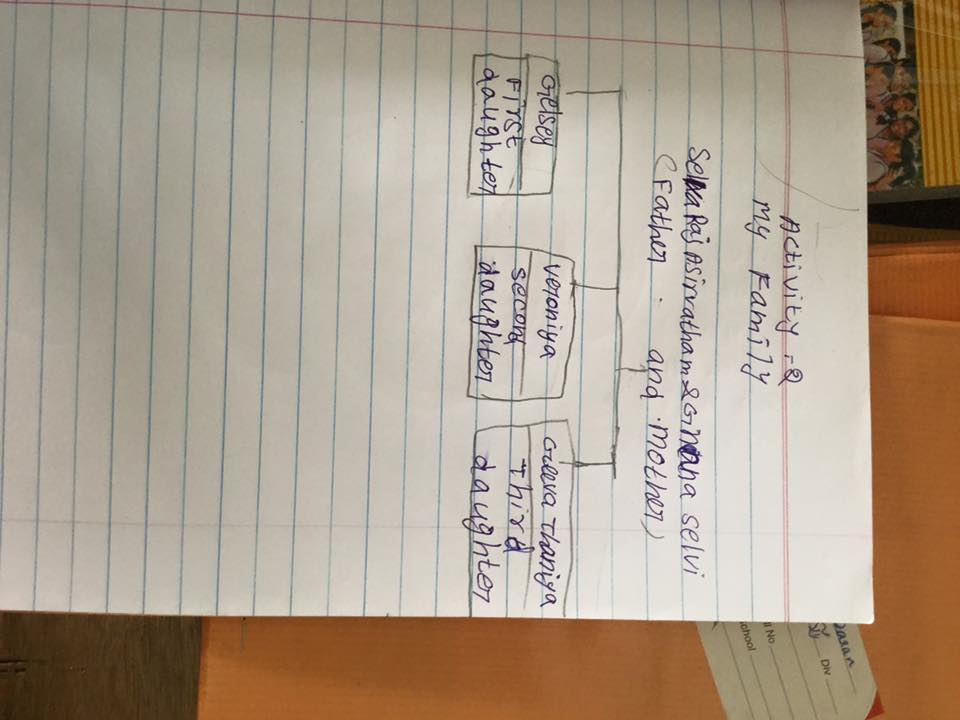 Activity :- 2
My Family
Selva Raj Asirvatham & Gnana selvi
(Father . and . mother)
Gelsey
First
daughter
veroniya
second
daughter
Geeva Thaniya
Third
daughter
ll No.
chool
Div